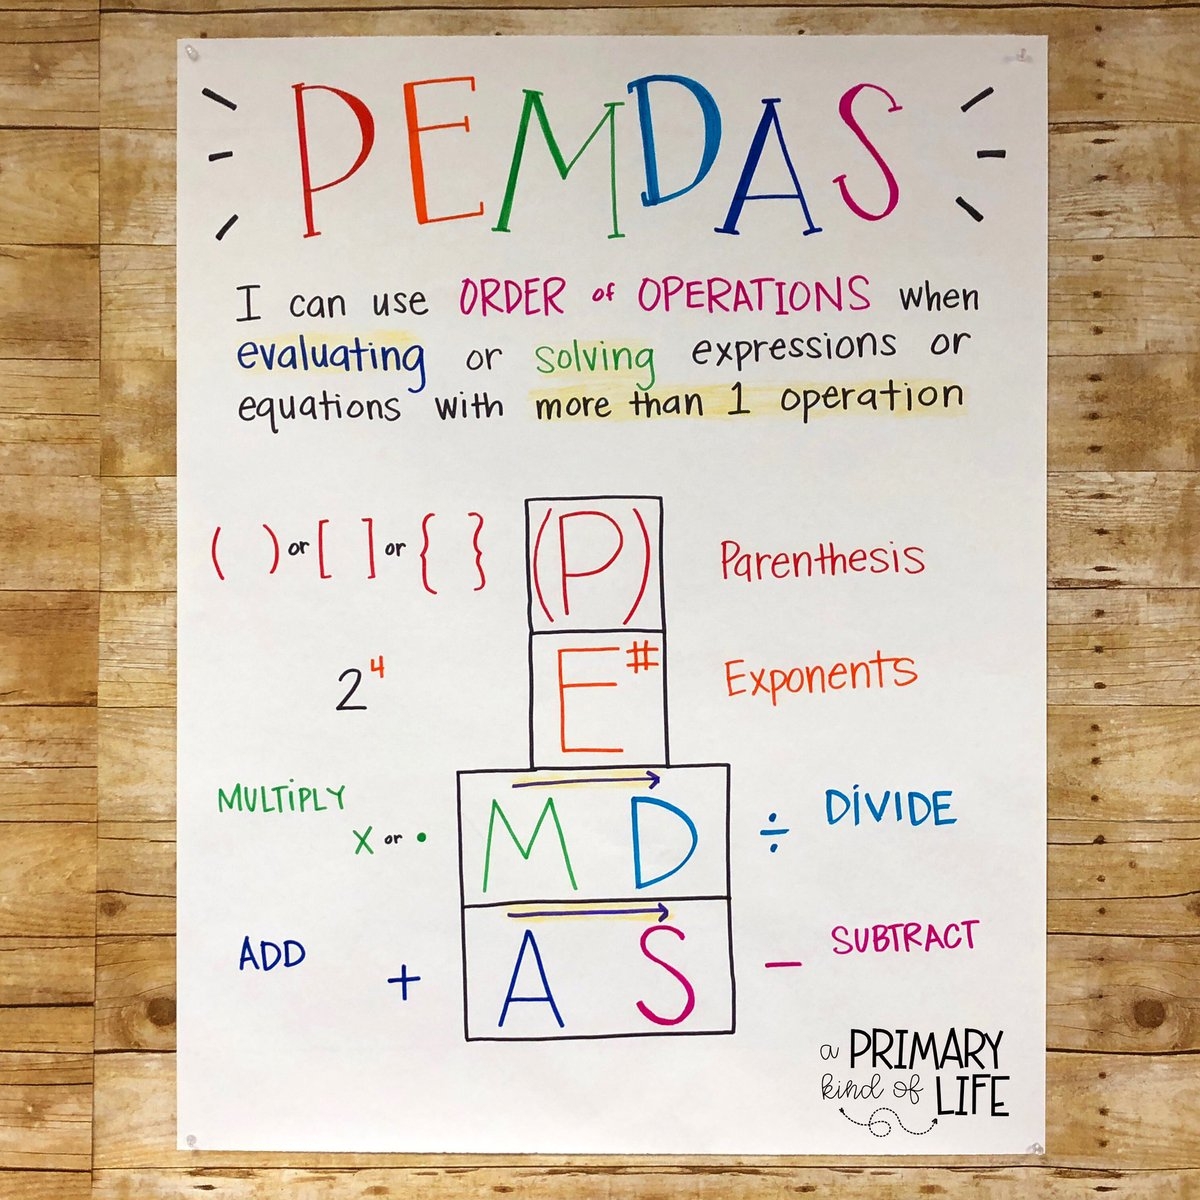 PEMDAS
I can use ORDER of OPERATIONS when
evaluating or solving expressions or
equations with more than 1 operation
( ) or [ ] or { } (P) Parenthesis
2⁴ E# Exponents
MULTIPLY x or • M D ÷ DIVIDE
ADD + A S − SUBTRACT
a PRIMARY
kind of LIFE